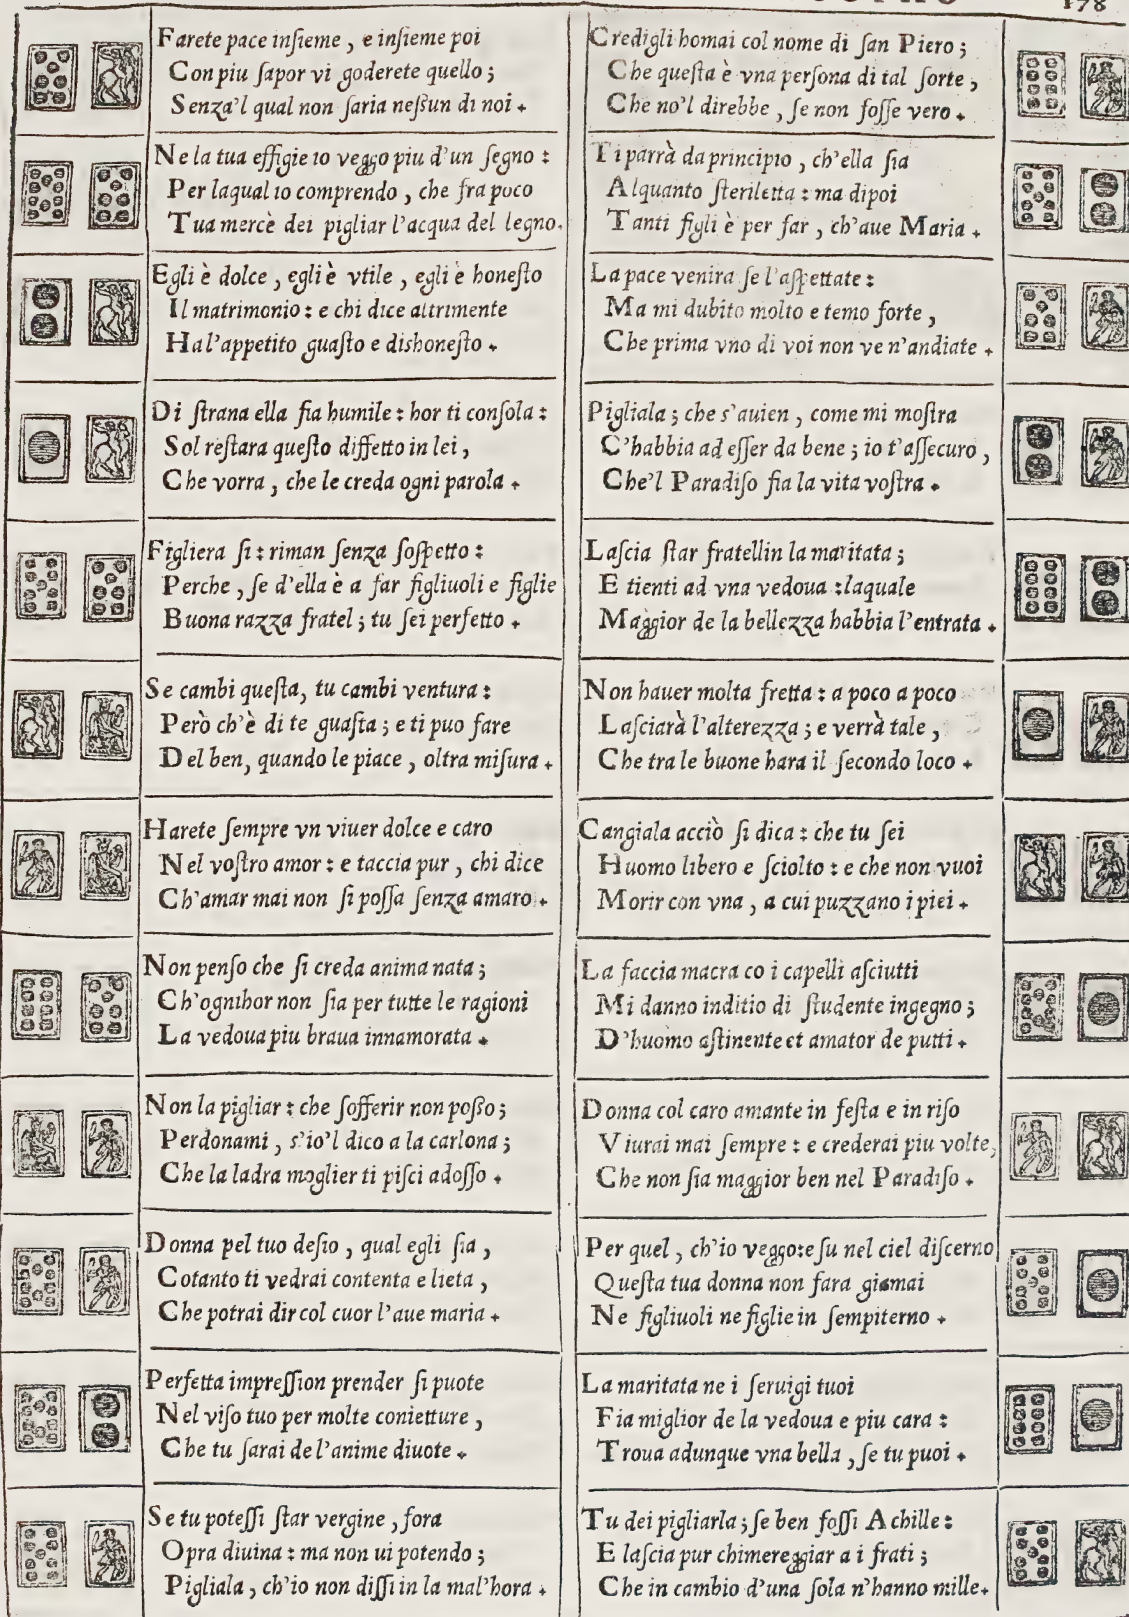 178
Farete pace inſieme, e inſieme poi
Con piu ſapor vi goderete quello;
Senza'l qual non ſaria neſſun di noi.
Ne la tua effigie io veggo piu d'un ſegno:
Per laqual io comprendo, che fra poco
Tua mercè dei pigliar l'acqua del legno.
Egli è dolce, egli è vtile, egli è honeſto
Il matrimonio: e chi dice altrimente
Ha l'appetito guaſto e dishoneſto.
Di ſtrana ella fia humile: hor ti conſola:
Sol reſtara queſto diffetto in lei,
Che vorra, che le creda ogni parola.
Figliera ſi: riman ſenza ſoſpetto:
Perche, ſe d'ella è a far figliuoli e figlie
Buona razza fratel; tu ſei perfetto.
Se cambi queſta, tu cambi ventura:
Però ch'è di te guaſta; e ti puo fare
Del ben, quando le piace, oltra miſura.
Harete ſempre vn viuer dolce e caro
Nel voſtro amor: e taccia pur, chi dice
Ch'amar mai non ſi poſſa ſenza amaro.
Non penſo che ſi creda anima nata;
Ch'ognihor non ſia per tutte le ragioni
La vedoua piu braua innamorata.
Non la pigliar: che ſofferir non poſſo;
Perdonami, s'io'l dico a la carlona;
Che la ladra moglier ti piſci adoſſo.
Donna pel tuo deſio, qual egli ſia,
Cotanto ti vedrai contenta e lieta,
Che potrai dir col cuor l'aue maria.
Perfetta impreſſion prender ſi puote
Nel viſo tuo per molte conietture,
Che tu ſarai de l'anime diuote.
Se tu poteſſi ſtar vergine, fora
Opra diuina: ma non ui potendo;
Pigliala, ch'io non diſſi in la mal'hora.
Credigli homai col nome di ſan Piero;
Che queſta è vna perſona di tal ſorte,
Che no'l direbbe, ſe non foſſe vero.
Ti parrà da principio, ch'ella ſia
Alquanto ſteriletta: ma dipoi
Tanti figli è per far, ch'aue Maria.
La pace venira ſe l'aſpettate:
Ma mi dubito molto e temo forte,
Che prima vno di voi non ve n'andiate.
Pigliala; che s'auien, come mi moſtra
C'habbia ad eſſer da bene; io t'aſſecuro,
Che'l Paradiſo fia la vita voſtra.
Laſcia ſtar fratellin la maritata;
E tienti ad vna vedoua: laquale
Maggior de la bellezza habbia l'entrata.
Non hauer molta fretta: a poco a poco
Laſciarà l'alterezza; e verrà tale,
Che tra le buone hara il ſecondo loco.
Cangiala acciò ſi dica: che tu ſei
Huomo libero e ſciolto: e che non vuoi
Morir con vna, a cui puzzano i piei.
La faccia macra co i capelli aſciutti
Mi danno inditio di ſtudente ingegno;
D'huomo aſtinente et amator de putti.
Donna col caro amante in feſta e in riſo
Viurai mai ſempre: e crederai piu volte,
Che non ſia maggior ben nel Paradiſo.
Per quel, ch'io veggo: e ſu nel ciel diſcerno
Queſta tua donna non fara giamai
Ne figliuoli ne figlie in ſempiterno.
La maritata ne i ſeruigi tuoi
Fia miglior de la vedoua e piu cara:
Troua adunque vna bella, ſe tu puoi.
Tu dei pigliarla; ſe ben foſſi Achille:
E laſcia pur chimereggiar a i frati;
Che in cambio d'una ſola n'hanno mille.